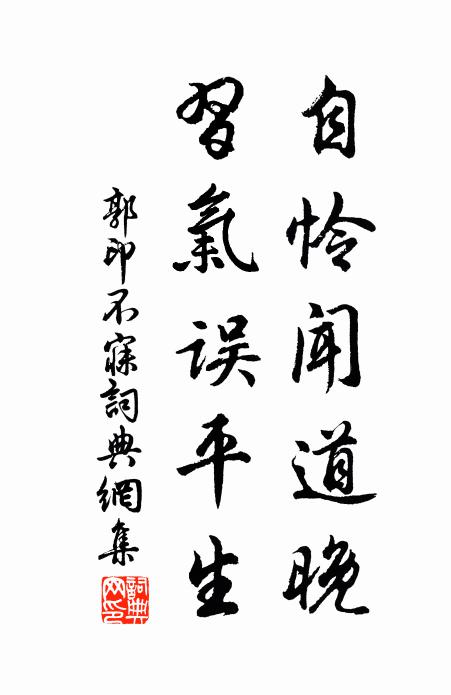 自怜闻道晚
習氣误平生
郭印不寐詞典網集
詞典网印